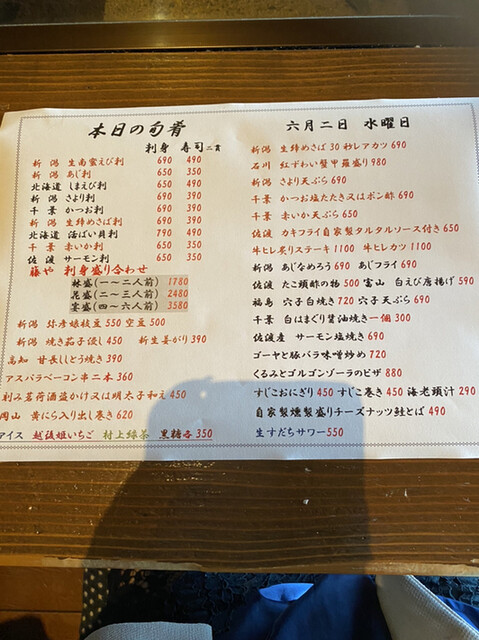 本日の旬肴
刺身 寿司二貫
新潟 生南蛮えび刺 690 490
新潟 あじ刺 650 350
北海道 しまえび刺 690 490
新潟 さより刺 690 390
千葉 かつお刺 690 390
新潟 生締めさば刺 690 390
北海道 活ばい貝刺 790 490
千葉 赤いか刺 650 350
佐渡 サーモン刺 650 350
藤や 刺身盛り合わせ
林盛(一~二人前) 1780
花盛(二~三人前) 2480
宴盛(四~六人前) 3580
新潟 弥彦娘枝豆 550 空豆 500
新潟 焼き茄子優し 450 新生姜がり 390
高知 甘長ししとう焼き 390
アスパラベーコン串二本 360
刻み茗荷酒盗かけ又は明太子和え 450
岡山 黄にら入り出し巻き 620
アイス 越後姫いちご 村上緑茶 黒糖 各350
六月二日 水曜日
新潟 生締めさば30秒レアカツ 690
石川 紅ずわい蟹甲羅盛り 980
新潟 さより天ぷら 690
千葉 かつお塩たたき又はポン酢 690
千葉 赤いか天ぷら 650
佐渡 カキフライ自家製タルタルソース付き 650
牛ヒレ炙りステーキ 1100 牛ヒレカツ 1100
新潟 あじなめろう 690 あじフライ 690
佐渡 たこ頭酢の物 500 富山 白えび唐揚げ 590
福島 穴子白焼き 720 穴子天ぷら 690
千葉 白はまぐり醤油焼き一個 300
佐渡産 サーモン塩焼き 690
ゴーヤと豚バラ味噌炒め 720
くるみとゴルゴンゾーラのピザ 880
すじこおにぎり 450 すじこ巻き 450 海老頭汁 290
自家製燻製盛りチーズナッツ鮭とば 490
生すだちサワー 550